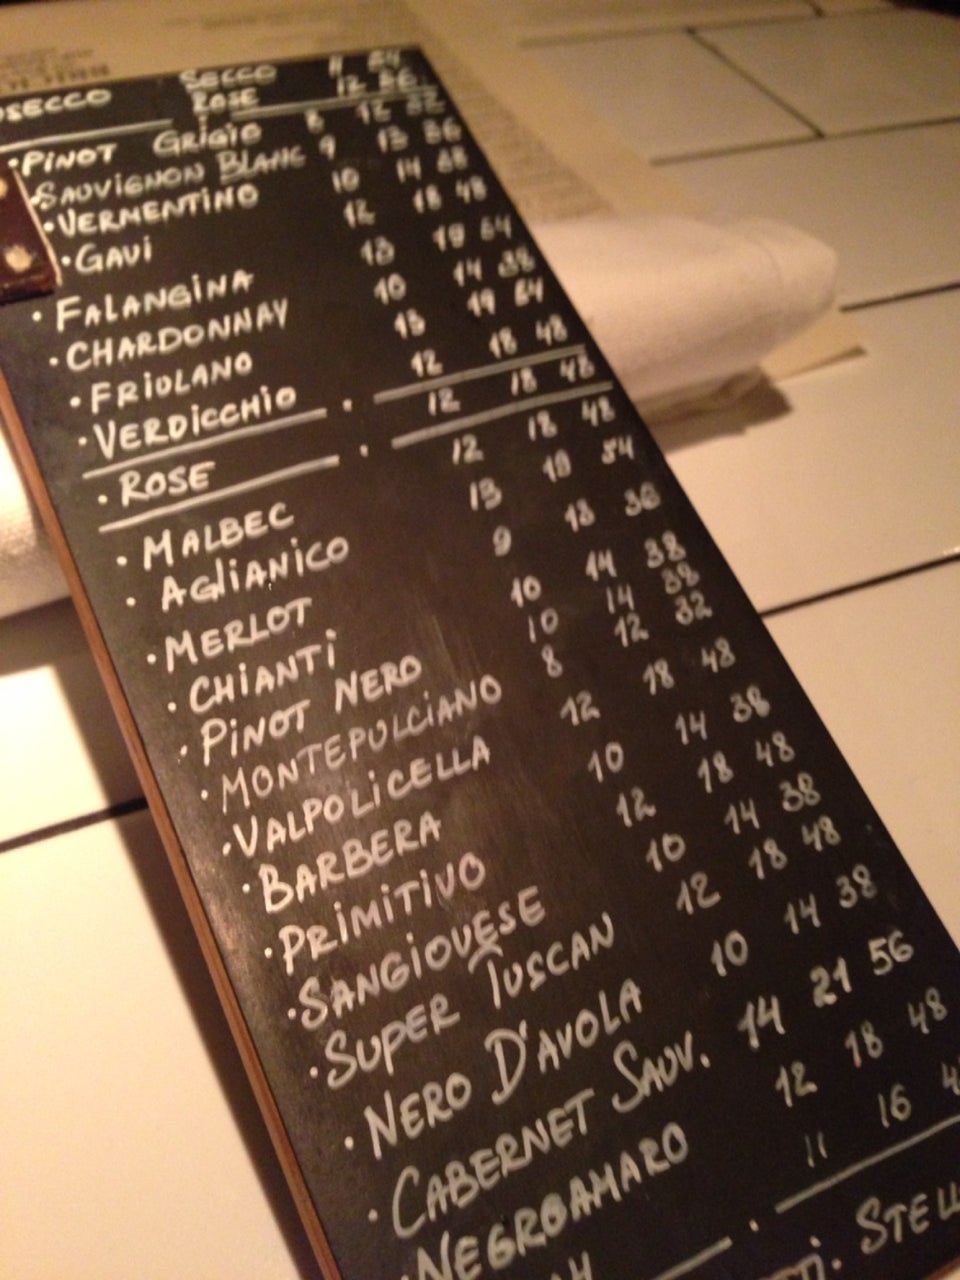 SECCO 11
ROSE 12 56
PINOT GRIGIO 8 12 32
SAUVIGNON BLANC 9 13 36
VERMENTINO 10 14 38
GAVI 12 18 48
FALANGINA 13 19 54
CHARDONNAY 10 14 38
FRIULANO 13 19 54
VERDICCHIO 12 18 48
ROSE 12 18 48
MALBEC 12 18 48
AGLIANICO 13 19 54
MERLOT 9 13 36
CHIANTI 10 14 38
PINOT NERO 10 14 38
MONTEPULCIANO 8 12 32
VALPOLICELLA 12 18 48
BARBERA 10 14 38
PRIMITIVO 12 18 48
SANGIOVESE 10 14 38
SUPER TUSCAN 12 18 48
NERO D'AVOLA 10 14 38
CABERNET SAUV. 14 21 56
NEGROAMARO 12 18 48
11 16